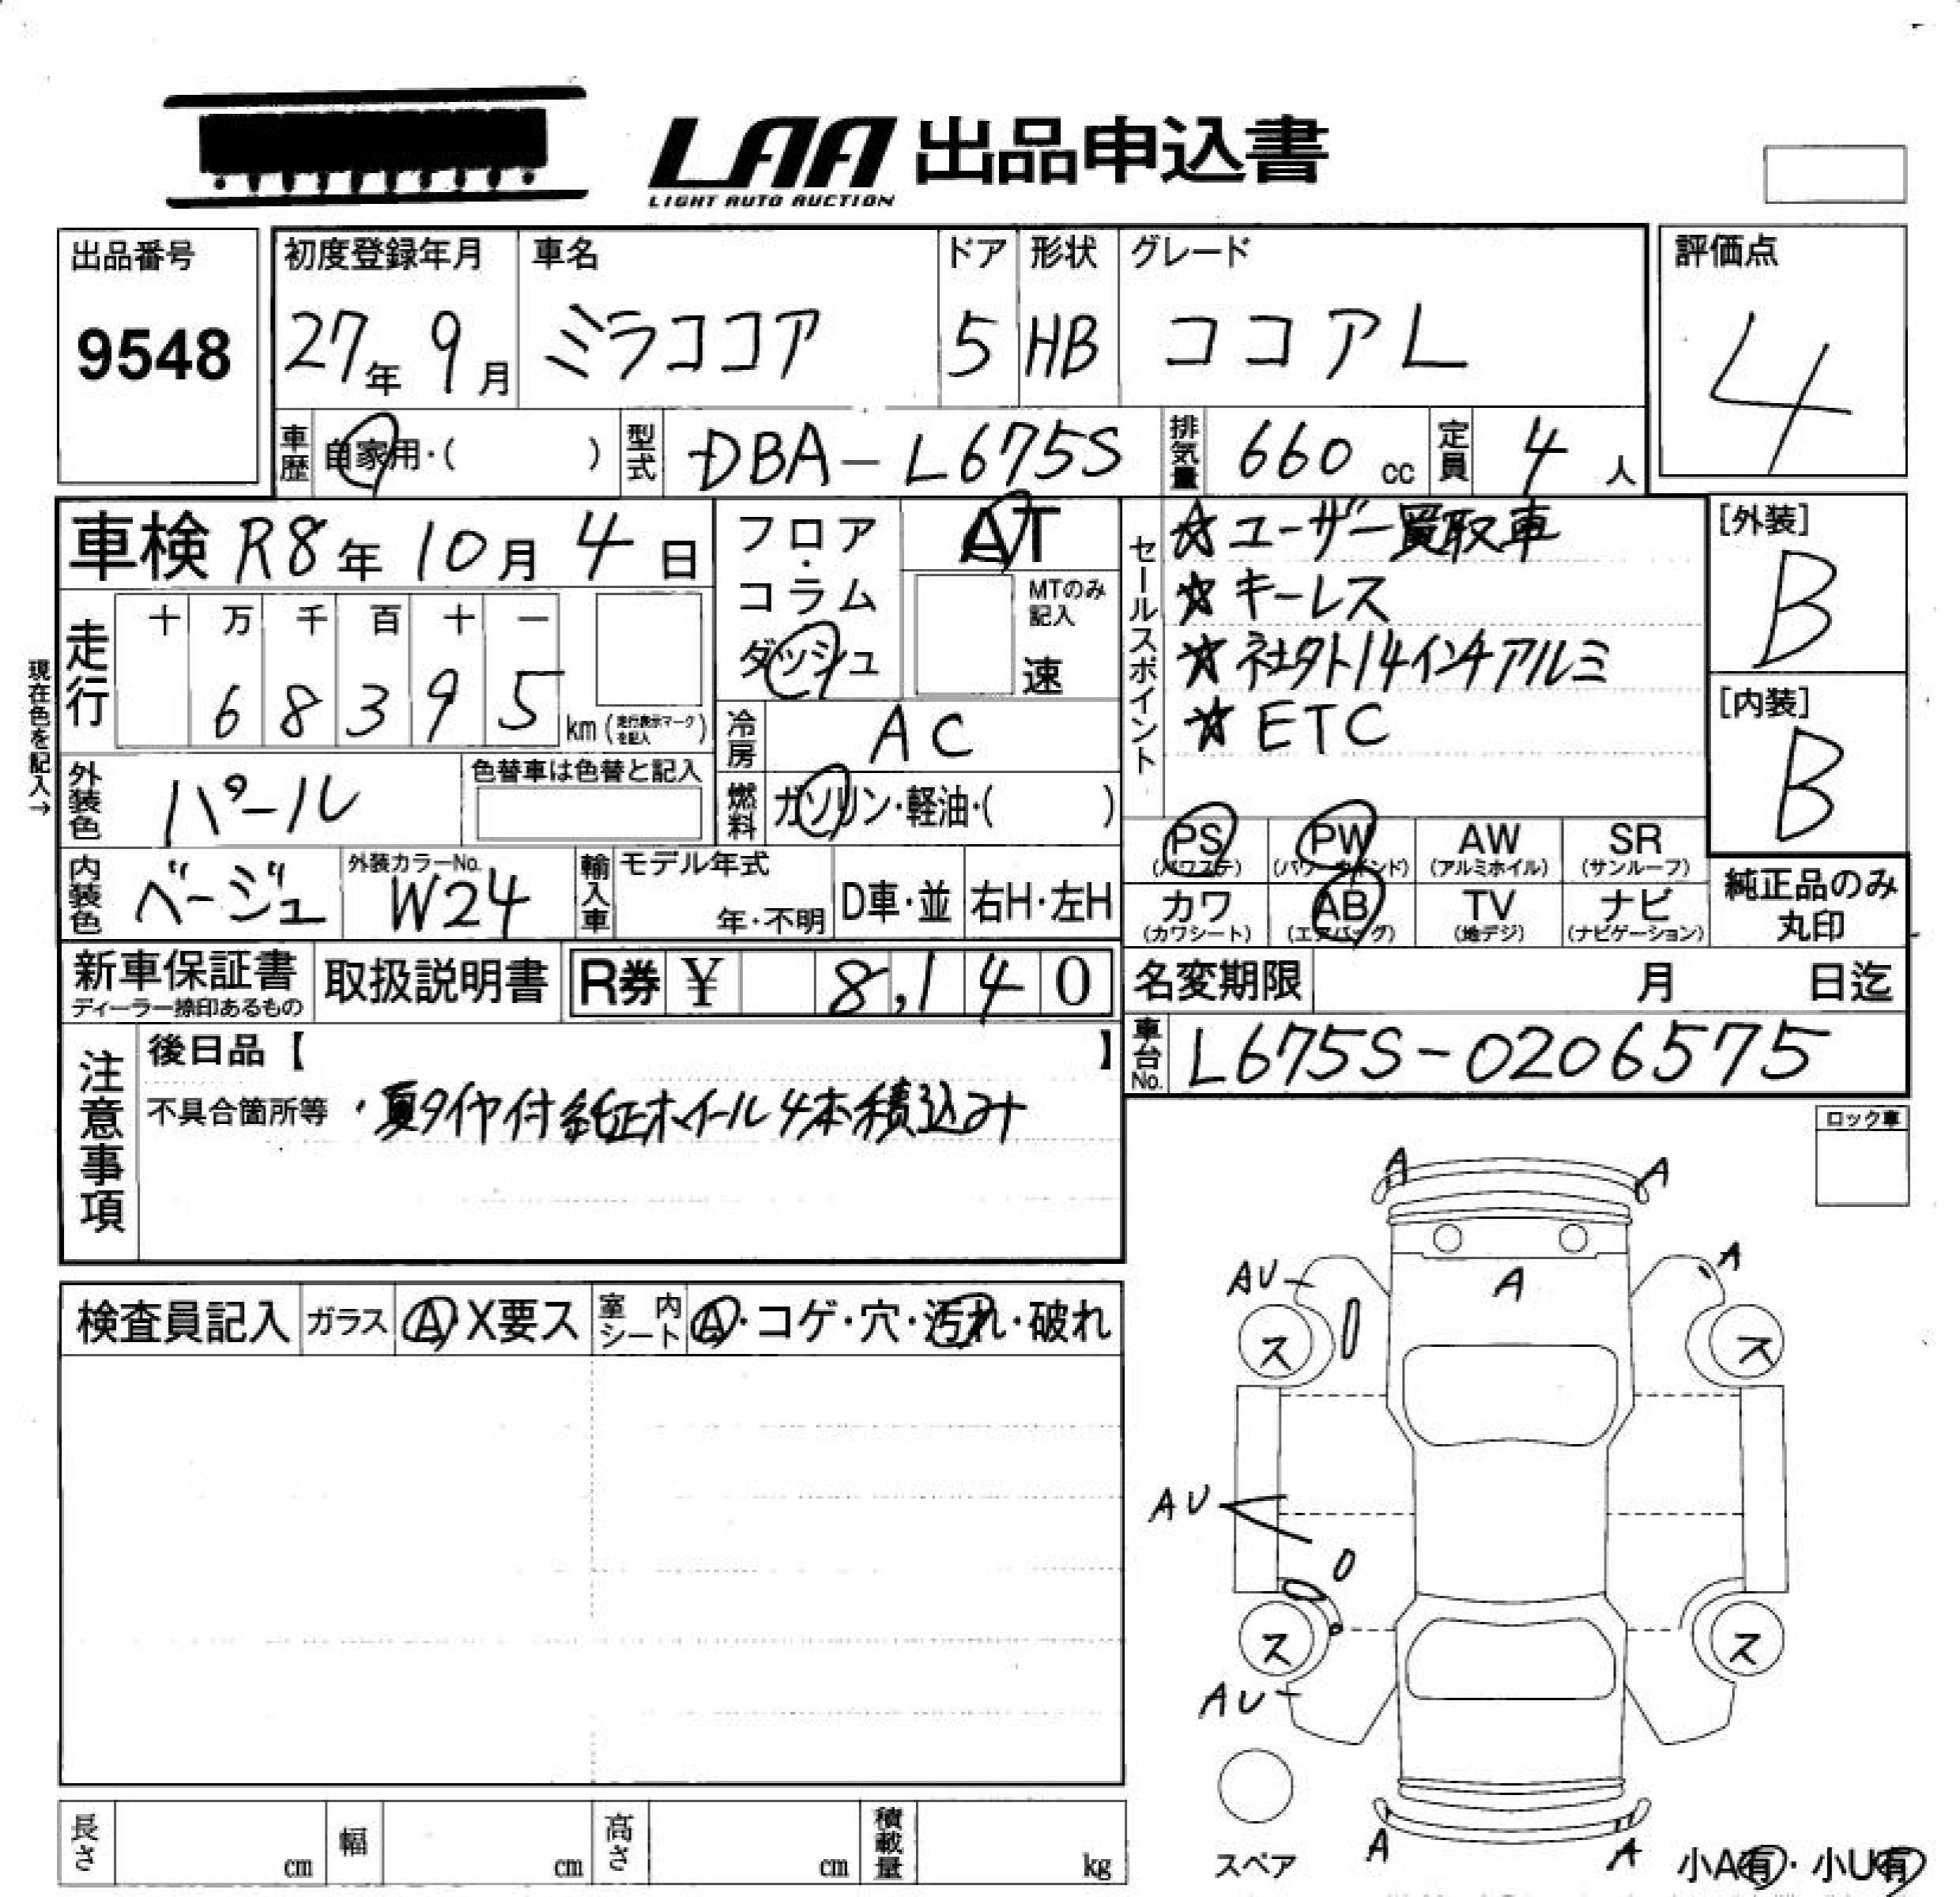 LAA 出品申込書
LIGHT AUTO AUCTION
出品番号
9548
初度登録年月
27年 9月
車名
ミラココア
ドア
5
形状
HB
グレード
ココアL
評価点
4
車歴 自家用・( )
型式 DBA-L675S
排気量 660 cc
定員 4 人
車検 R8年 10月 4日
フロア・コラム
ダッシュ
AT
MTのみ記入
速
セールスポイント
☆ユーザー買取車
☆キーレス
☆社外14インチアルミ
☆ETC
[外装]
B
[内装]
B
現在色を記入→
走行
十 万 千 百 十 一
6 8 3 9 5 km (走行表示マークを記入)
冷房 AC
外装色 パール
色替車は色替と記入
燃料 ガソリン・軽油・( )
PS (パワステ)
PW (パワーウインド)
AW (アルミホイル)
SR (サンルーフ)
カワ (カワシート)
AB (エアバッグ)
TV (地デジ)
ナビ (ナビゲーション)
純正品のみ
丸印
内装色 ベージュ
外装カラーNo.
W24
輸入車
モデル年式
年・不明
D車・並
右H・左H
新車保証書
ディーラー捺印あるもの
取扱説明書
R券 ¥ 8,140
名変期限 月 日迄
車台No. L675S-0206575
注意事項
後日品【 】
不具合箇所等 ・夏タイヤ付純正ホイール4本積込み
ロック車
検査員記入
ガラス A X要ス
室内シート A・コゲ・穴・汚れ・破れ
A A
AU A A
ス ス
AU
ス ス
AU
スペア
A A
小A有・小U有
長さ cm
幅 cm
高さ cm
積載量 kg